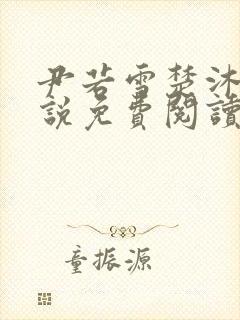 尹若雪楚沐
說免費閱讀
童振源